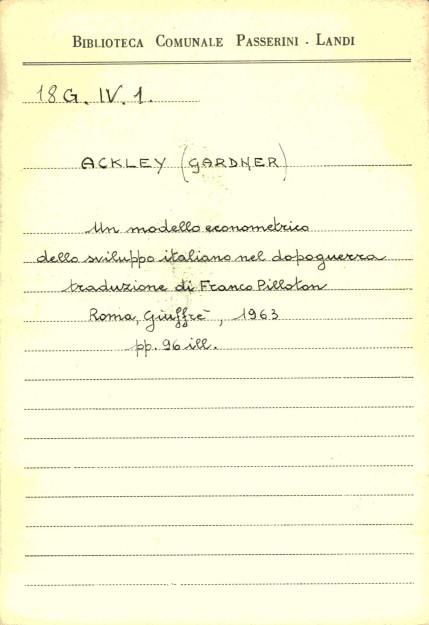 BIBLIOTECA COMUNALE PASSERINI - LANDI
18 G. IV. 1.
ACKLEY (GARDNER)
Un modello econometrico
dello sviluppo italiano nel dopoguerra
traduzione di Franco Pilloton
Roma, Giuffrè, 1963
pp. 96 ill.